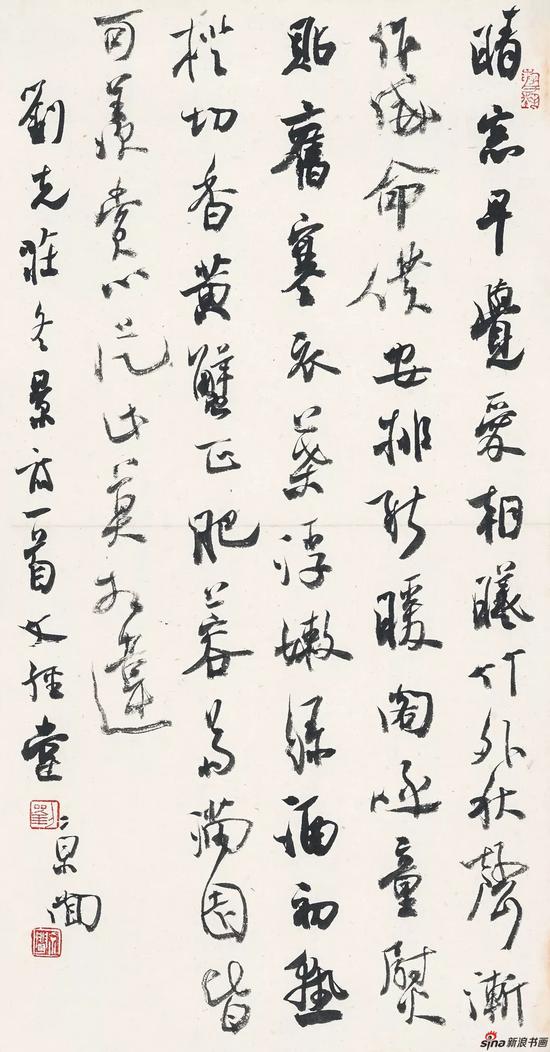 晴窓早覺愛朝曦竹外秋聲漸
作威命僕安排新暖閣呼童熨
貼舊寒衣葉浮嫩綠酒初熟
橙切香黃蟹正肥蓉菊滿園皆
可羨賞心從此莫相違
劉克莊冬景詩一首
sina新浪书画